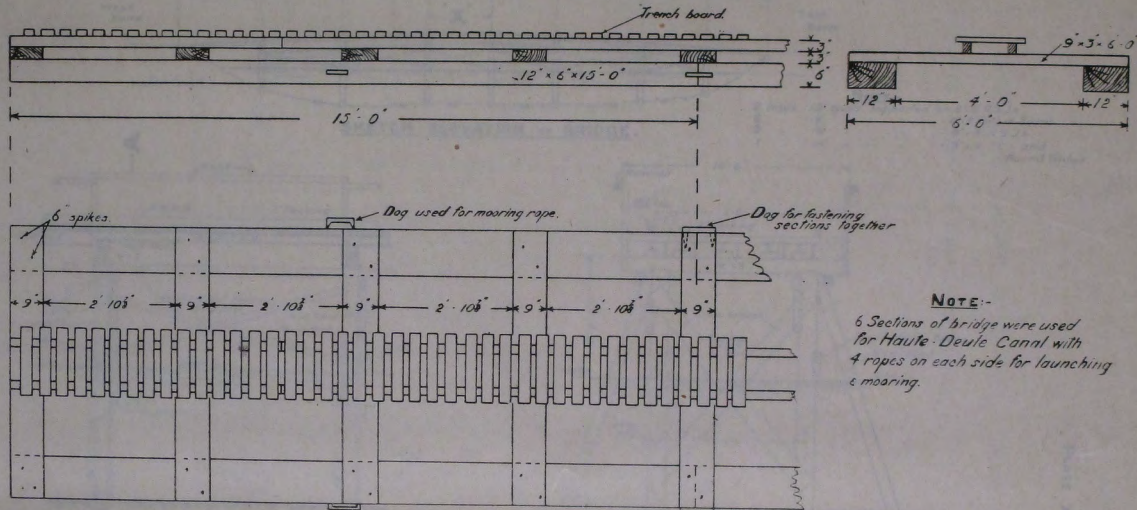 Trench board.
3"
3"
6"
12" × 6" × 15'-0"
15'-0"
9" × 3" × 6'-0"
12"
4'-0"
12"
6'-0"
6" spikes.
Dog used for mooring rope.
Dog for fastening
sections together
9"
2'-10½"
9"
2'-10½"
9"
2'-10½"
9"
2'-10½"
9"
NOTE:-
6 Sections of bridge were used
for Haute-Deule Canal with
4 ropes on each side for launching
& mooring.